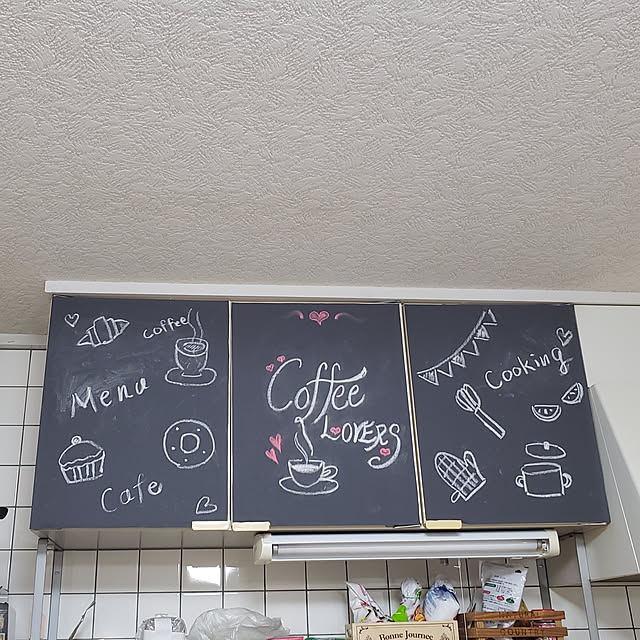 coffee
Menu
Cafe
Coffee
LOVERS
Cooking
Bonne Journee